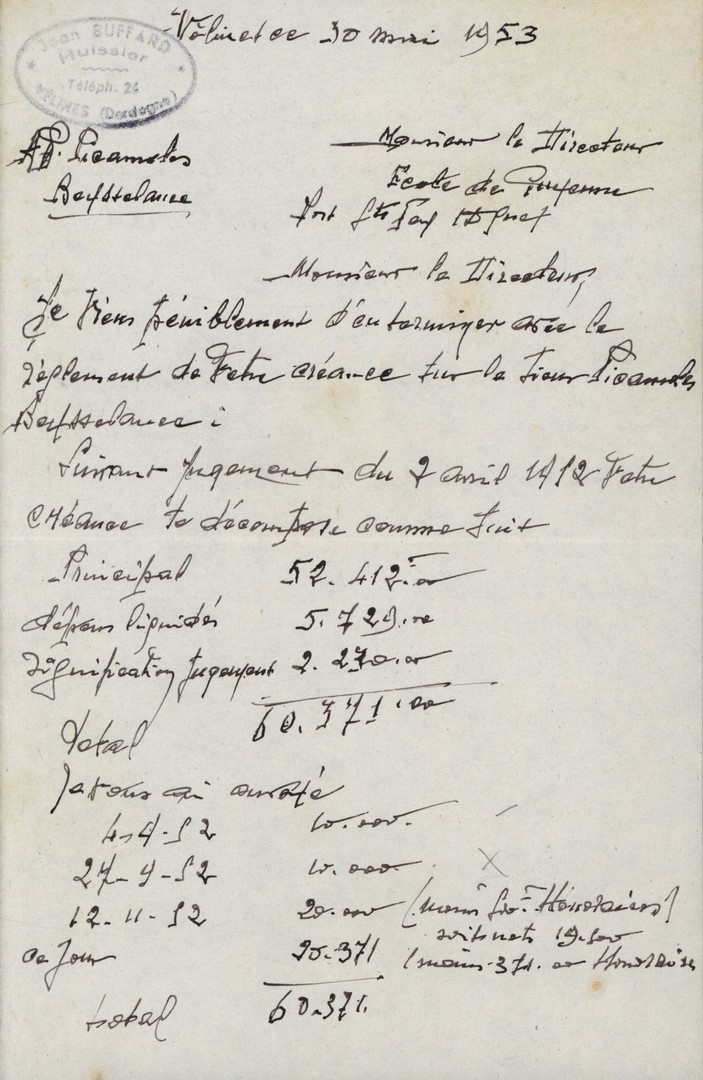 Jean BUFFARD
Huissier
Téléph. 24
VÉLINES (Dordogne)
Vélines ce 30 mai 1953
Picamoles
Beysselance
Monsieur le Directeur
Ecole de Guyenne
Port Ste Foy
Monsieur le Directeur,
Je viens péniblement d'en terminer avec le
règlement de votre créance sur le sieur Picamoles
Beysselance :
Suivant jugement du 2 avril 1952 votre
créance se décompose comme suit
Principal 52.412.00
dépens liquidés 5.729.00
signification jugement 2.230.00
Total 60.371.00
Je vous ai envoyé
4-4-52 10.000.
27-9-52 10.000
12-11-52 20.000 (moins 500 Honoraires)
soit nets 19.500
ce jour 20.371 (moins 371.00 Honoraires
total 60.371.